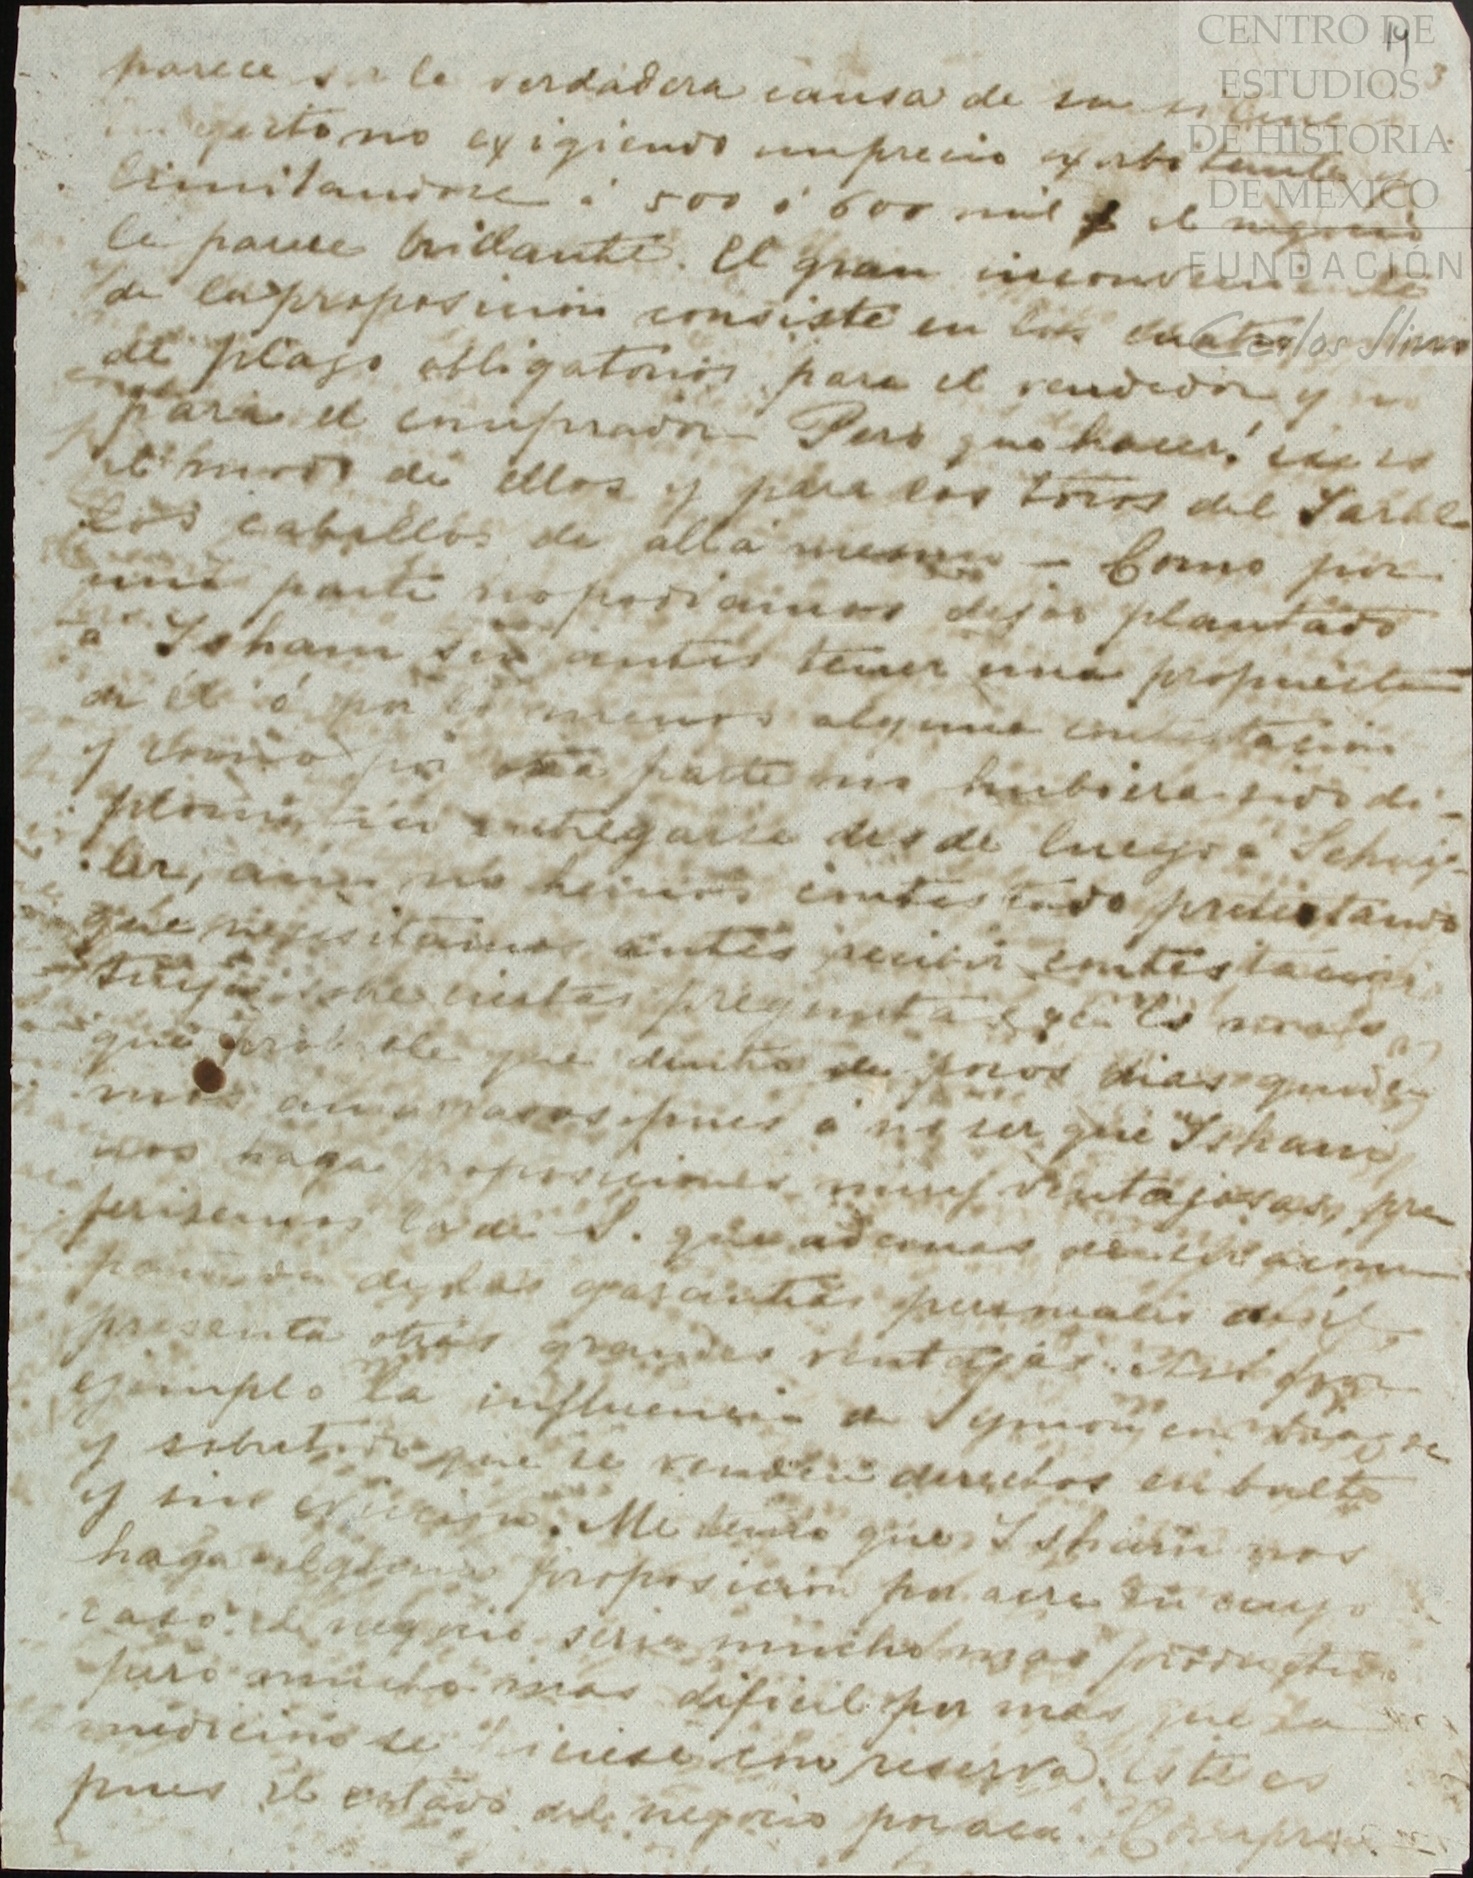 CENTRO DE
ESTUDIOS
DE HISTORIA
DE MEXICO
FUNDACIÓN
Carlos Slim
19
3
parece ser la verdadera causa de su
no exigiendo un precio exorbitante y
limitandose á 500 ó 600 mil $ el negocio
le parece brillante. El gran inconveniente
de la proposicion consiste en los cuatro
de plazo obligatorios para el vendedor y no
para el comprador. Pero que hacer! ese es
el modo de ellos y para los toros del Jaral
los caballos de allá mesmo — Como por
una parte no podiamos dejar plantado
a Isham sin antes tener una propuesta
de él ó por lo menos alguna contestacion
y como por otra parte no hubiera sido di-
plomatico entregarse desde luego á Schuy-
ler, aun no hemos contestado pretestando
que necesitamos antes recibir contestacion
suya sobre ciertas preguntas y es mas
que probable que dentro de pocos dias quede-
mos amarrados pues á no ser que Isham
nos haga proposiciones muy ventajosas, pre
ferisemos la de S. que ademas de ir acom
pañada de las garantias personales de él
presenta otras grandes ventajas. Asi por
ejemplo la influencia de Symon en
y sobretodo que se venden derechos en bulto
y sin eviccion. Me temo que Isham nos
haga alguna proposicion por acre en cuyo
caso el negocio seria mucho mas productivo
pero mucho mas dificil por mas que la
medicion se hiciese con reserva. Este es
pues el estado del negocio por aca.